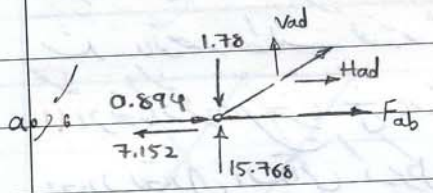 Vad
1.78
Had
0.894
Fab
7.152
15.768